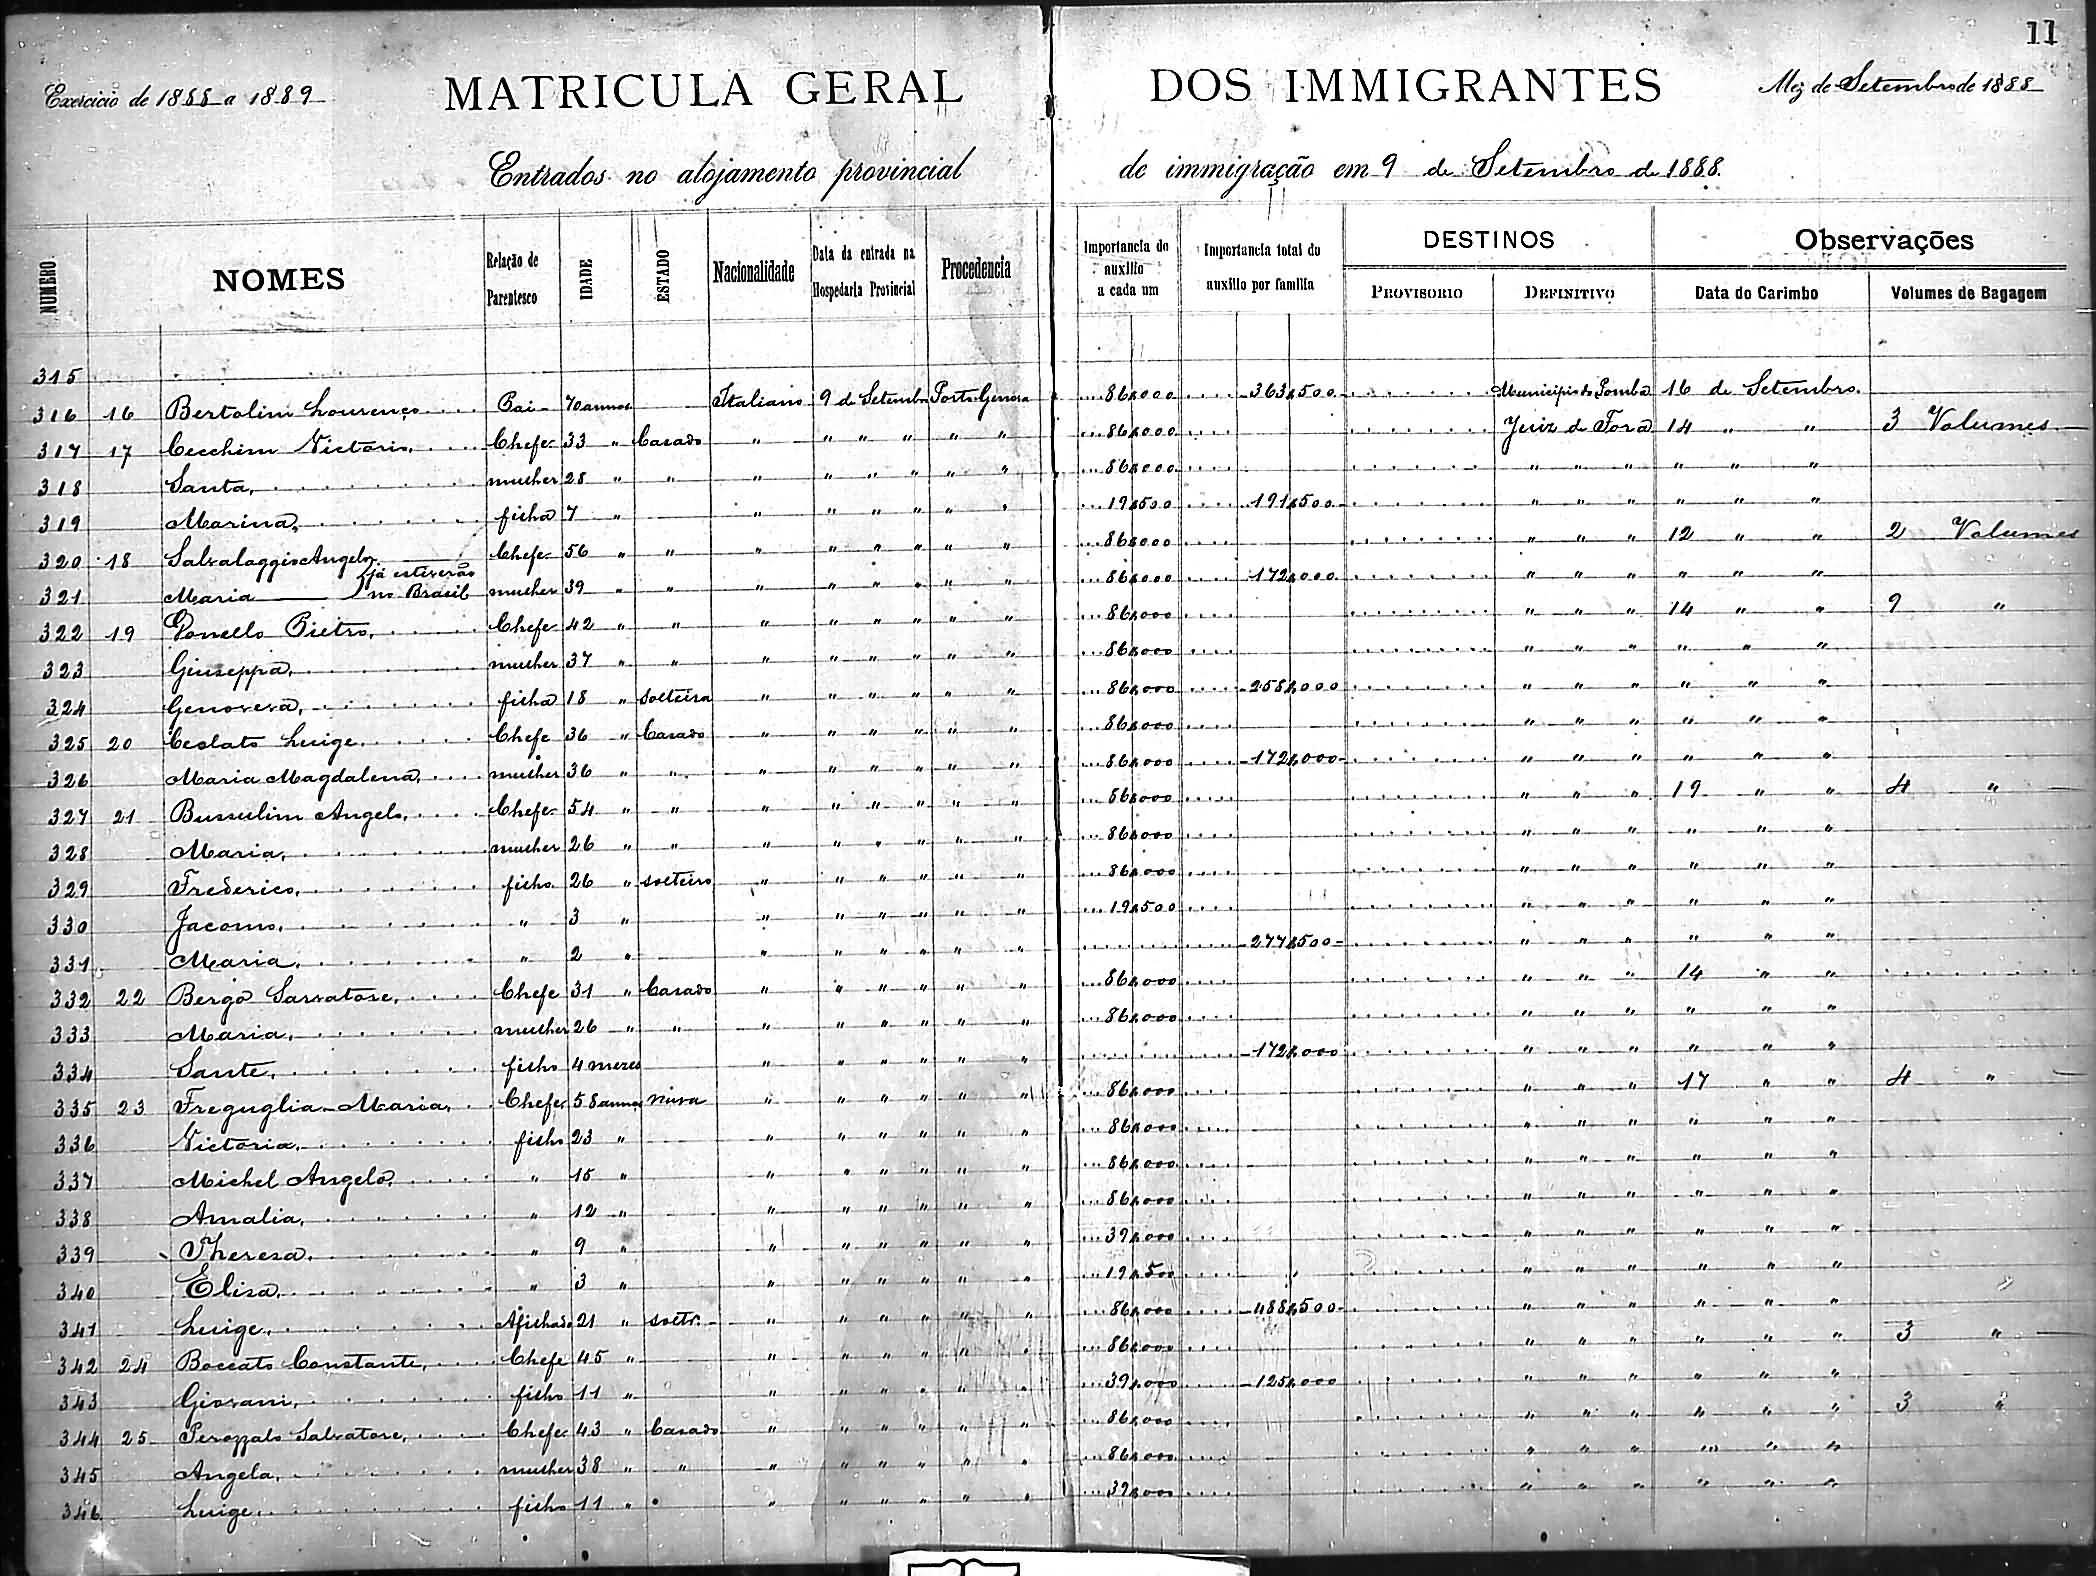 11
Exercicio de 1888 a 1889 MATRICULA GERAL DOS IMMIGRANTES Mez de Setembro de 1888
Entrados no alojamento provincial de immigração em 9 de Setembro de 1888.
NUMERO NOMES Relação de Parentesco IDADE ESTADO Nacionalidade Data da entrada na Hospedaria Provincial Procedencia Importancia do auxilio a cada um Importancia total do auxilio por familia DESTINOS PROVISORIO DEFINITIVO Observações Data do Carimbo Volumes de Bagagem
315
316 16 Bertolini Lourenço Pai 70 annos Italiano 9 de Setembro Porto Genova 86$000 363$500 Municipio do Pomba 16 de Setembro
317 17 Cecchim Victorio Chefe 33 " Casado " " " " " " 86$000 Juiz de Fora 14 " " 3 Volumes
318 Santa mulher 28 " " " " " " " " 86$000 " " " " " "
319 Marina filha 7 " " " " " " " 19$500 191$500 " " " " " "
320 18 Salvalaggio Angelo Chefe 56 " " " " " " " " 86$000 " " " 12 " " 2 Volumes
321 Maria já estiverão no Brasil mulher 39 " " " " " " " " 86$000 172$000 " " " " " "
322 19 Ponello Pietro Chefe 42 " " " " " " " " 86$000 " " " 14 " " 9 "
323 Giuseppa mulher 37 " " " " " " " " 86$000 " " " " " "
324 Genovera filha 18 " solteira " " " " " " 86$000 258$000 " " " " " "
325 20 Ceolato Luige Chefe 36 " Casado " " " " " " 86$000 " " " " " "
326 Maria Magdalena mulher 36 " " " " " " " " 86$000 172$000 " " " " " "
327 21 Bussulim Angelo Chefe 54 " " " " " " " " 86$000 " " " 19 " " 4 "
328 Maria mulher 26 " " " " " " " " 86$000 " " " " " "
329 Frederico filho 26 " solteiro " " " " " " 86$000 " " " " " "
330 Jacomo " 3 " " " " " " " 19$500 " " " " " "
331 Maria " 2 " " " " " " " 277$500 " " " " " "
332 22 Bergo Sarvatore Chefe 31 " Casado " " " " " " 86$000 " " " 14 " "
333 Maria mulher 26 " " " " " " " " 86$000 " " " " " "
334 Sante filho 4 mezes " " " " " " 172$000 " " " " " "
335 23 Freguglia Maria Chefe 58 annos viuva " " " " " " 86$000 " " " 17 " " 4 "
336 Victoria filho 23 " " " " " " " 86$000 " " " " " "
337 Michel Angelo " 15 " " " " " " " 86$000 " " " " " "
338 Amalia " 12 " " " " " " " 86$000 " " " " " "
339 Theresa " 9 " " " " " " " 39$000 " " " " " "
340 Elisa " 3 " " " " " " " 19$500 " " " " " "
341 Luige Afilhado 21 " soltr. " " " " " " 86$000 488$500 " " " " " "
342 24 Boccato Constante Chefe 45 " " " " " " " 86$000 " " " " " " 3 "
343 Giovani filho 11 " " " " " " " 39$000 125$000 " " " " " "
344 25 Perozzalo Salvatore Chefe 43 " Casado " " " " " " 86$000 " " " " " " 3 "
345 Angela mulher 38 " " " " " " " " 86$000 " " " " " "
346 Luige filho 11 " " " " " " " " 39$000 " " " " " "